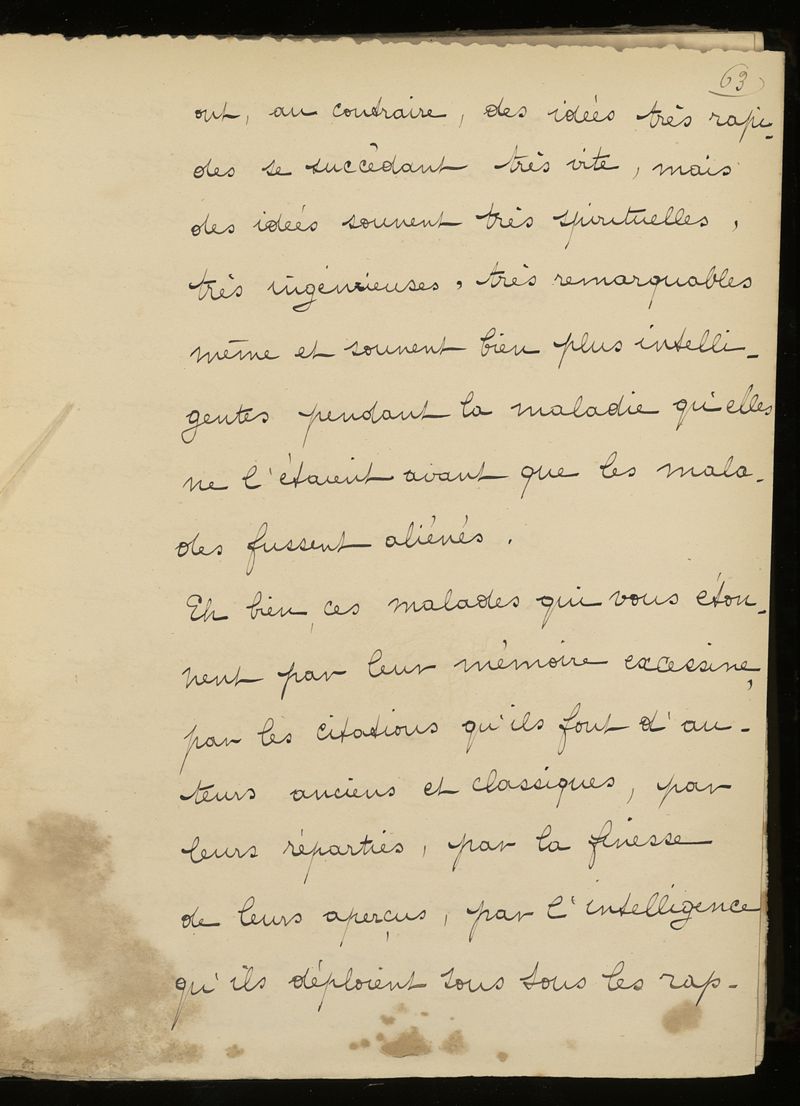 63
ont, au contraire, des idées très rapi-
des se succédant très vite, mais
des idées souvent très spirituelles,
très ingénieuses, très remarquables
même et souvent bien plus intelli-
gentes pendant la maladie qu'elles
ne l'étaient avant que les mala-
des fussent aliénés.
Eh bien, ces malades qui vous éton-
nent par leur mémoire excessive,
par les citations qu'ils font d'au-
teurs anciens et classiques, par
leurs réparties, par la finesse
de leurs aperçus, par l'intelligence
qu'ils déploient sous tous les rap-